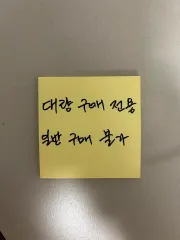 대량 구매 전용
일반 구매 불가